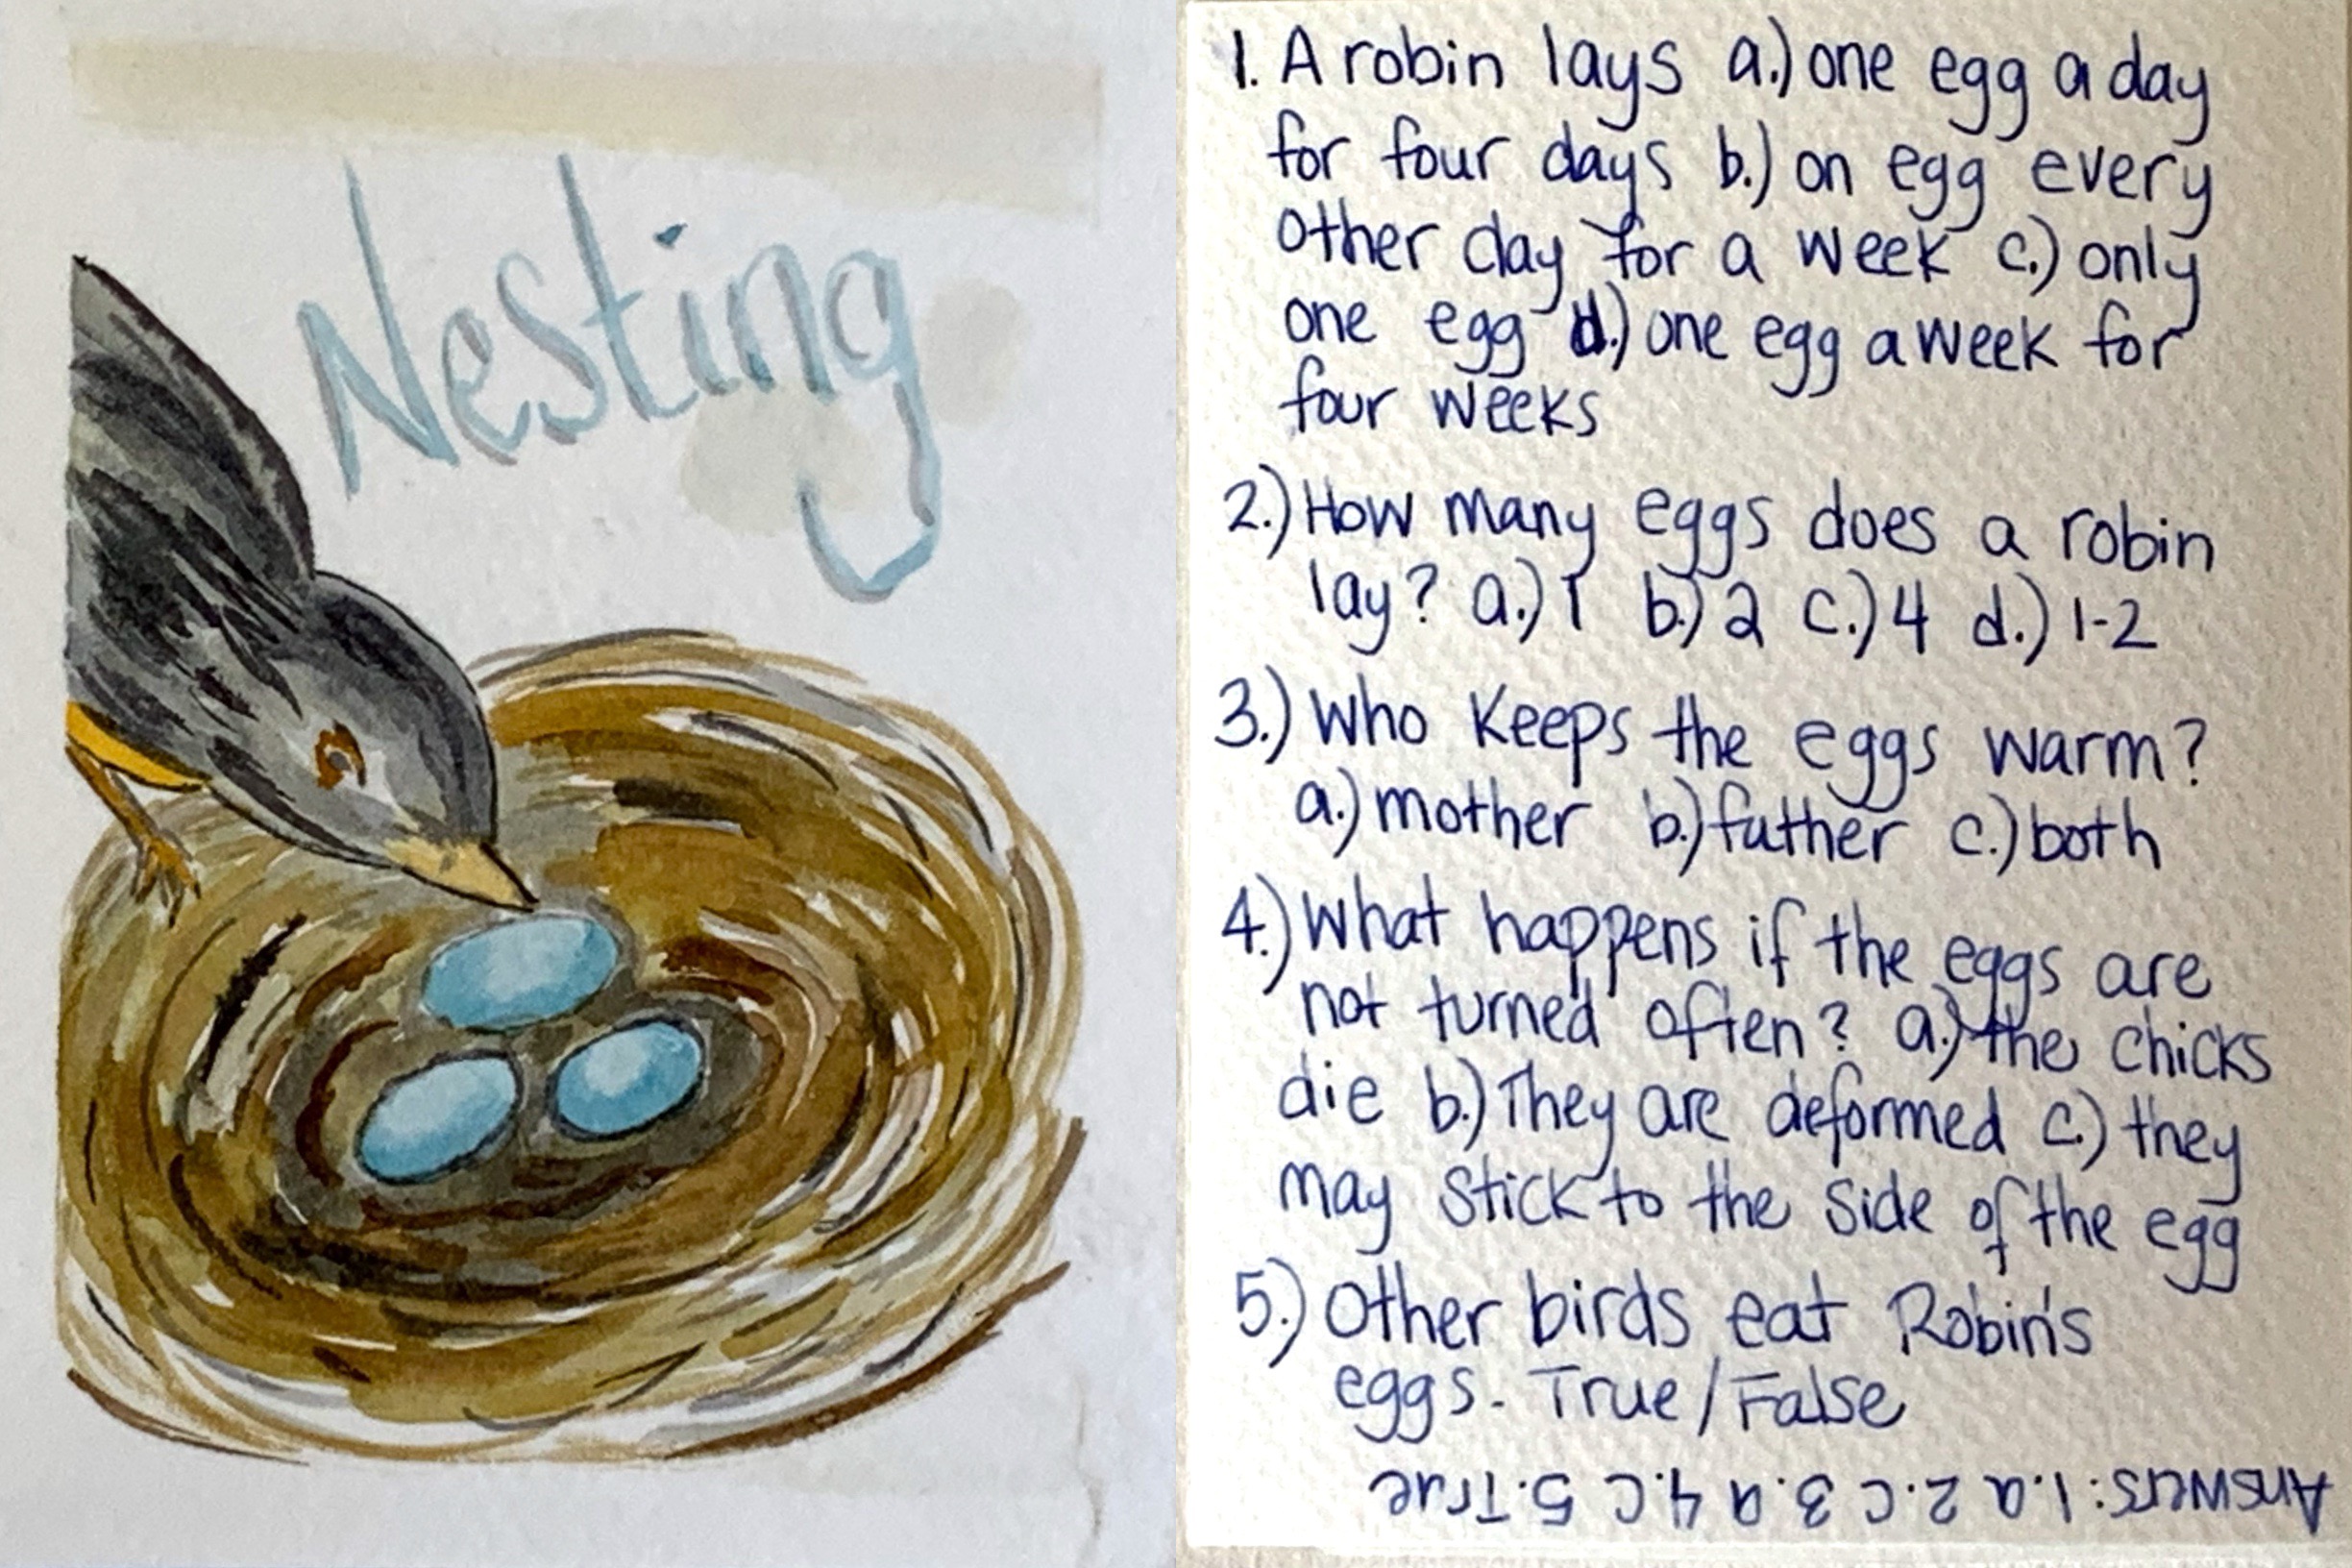 Nesting
1. A robin lays a.) one egg a day
for four days b.) on egg every
other day for a week c.) only
one egg d.) one egg a week for
four weeks
2.) How many eggs does a robin
lay? a.) 1 b.) 2 c.) 4 d.) 1-2
3.) Who keeps the eggs warm?
a.) mother b.) father c.) both
4.) What happens if the eggs are
not turned often? a.) the chicks
die b.) They are deformed c.) they
may stick to the side of the egg
5.) Other birds eat Robin's
eggs. True/False
Answers: 1.a 2.c 3.a 4.c 5.True